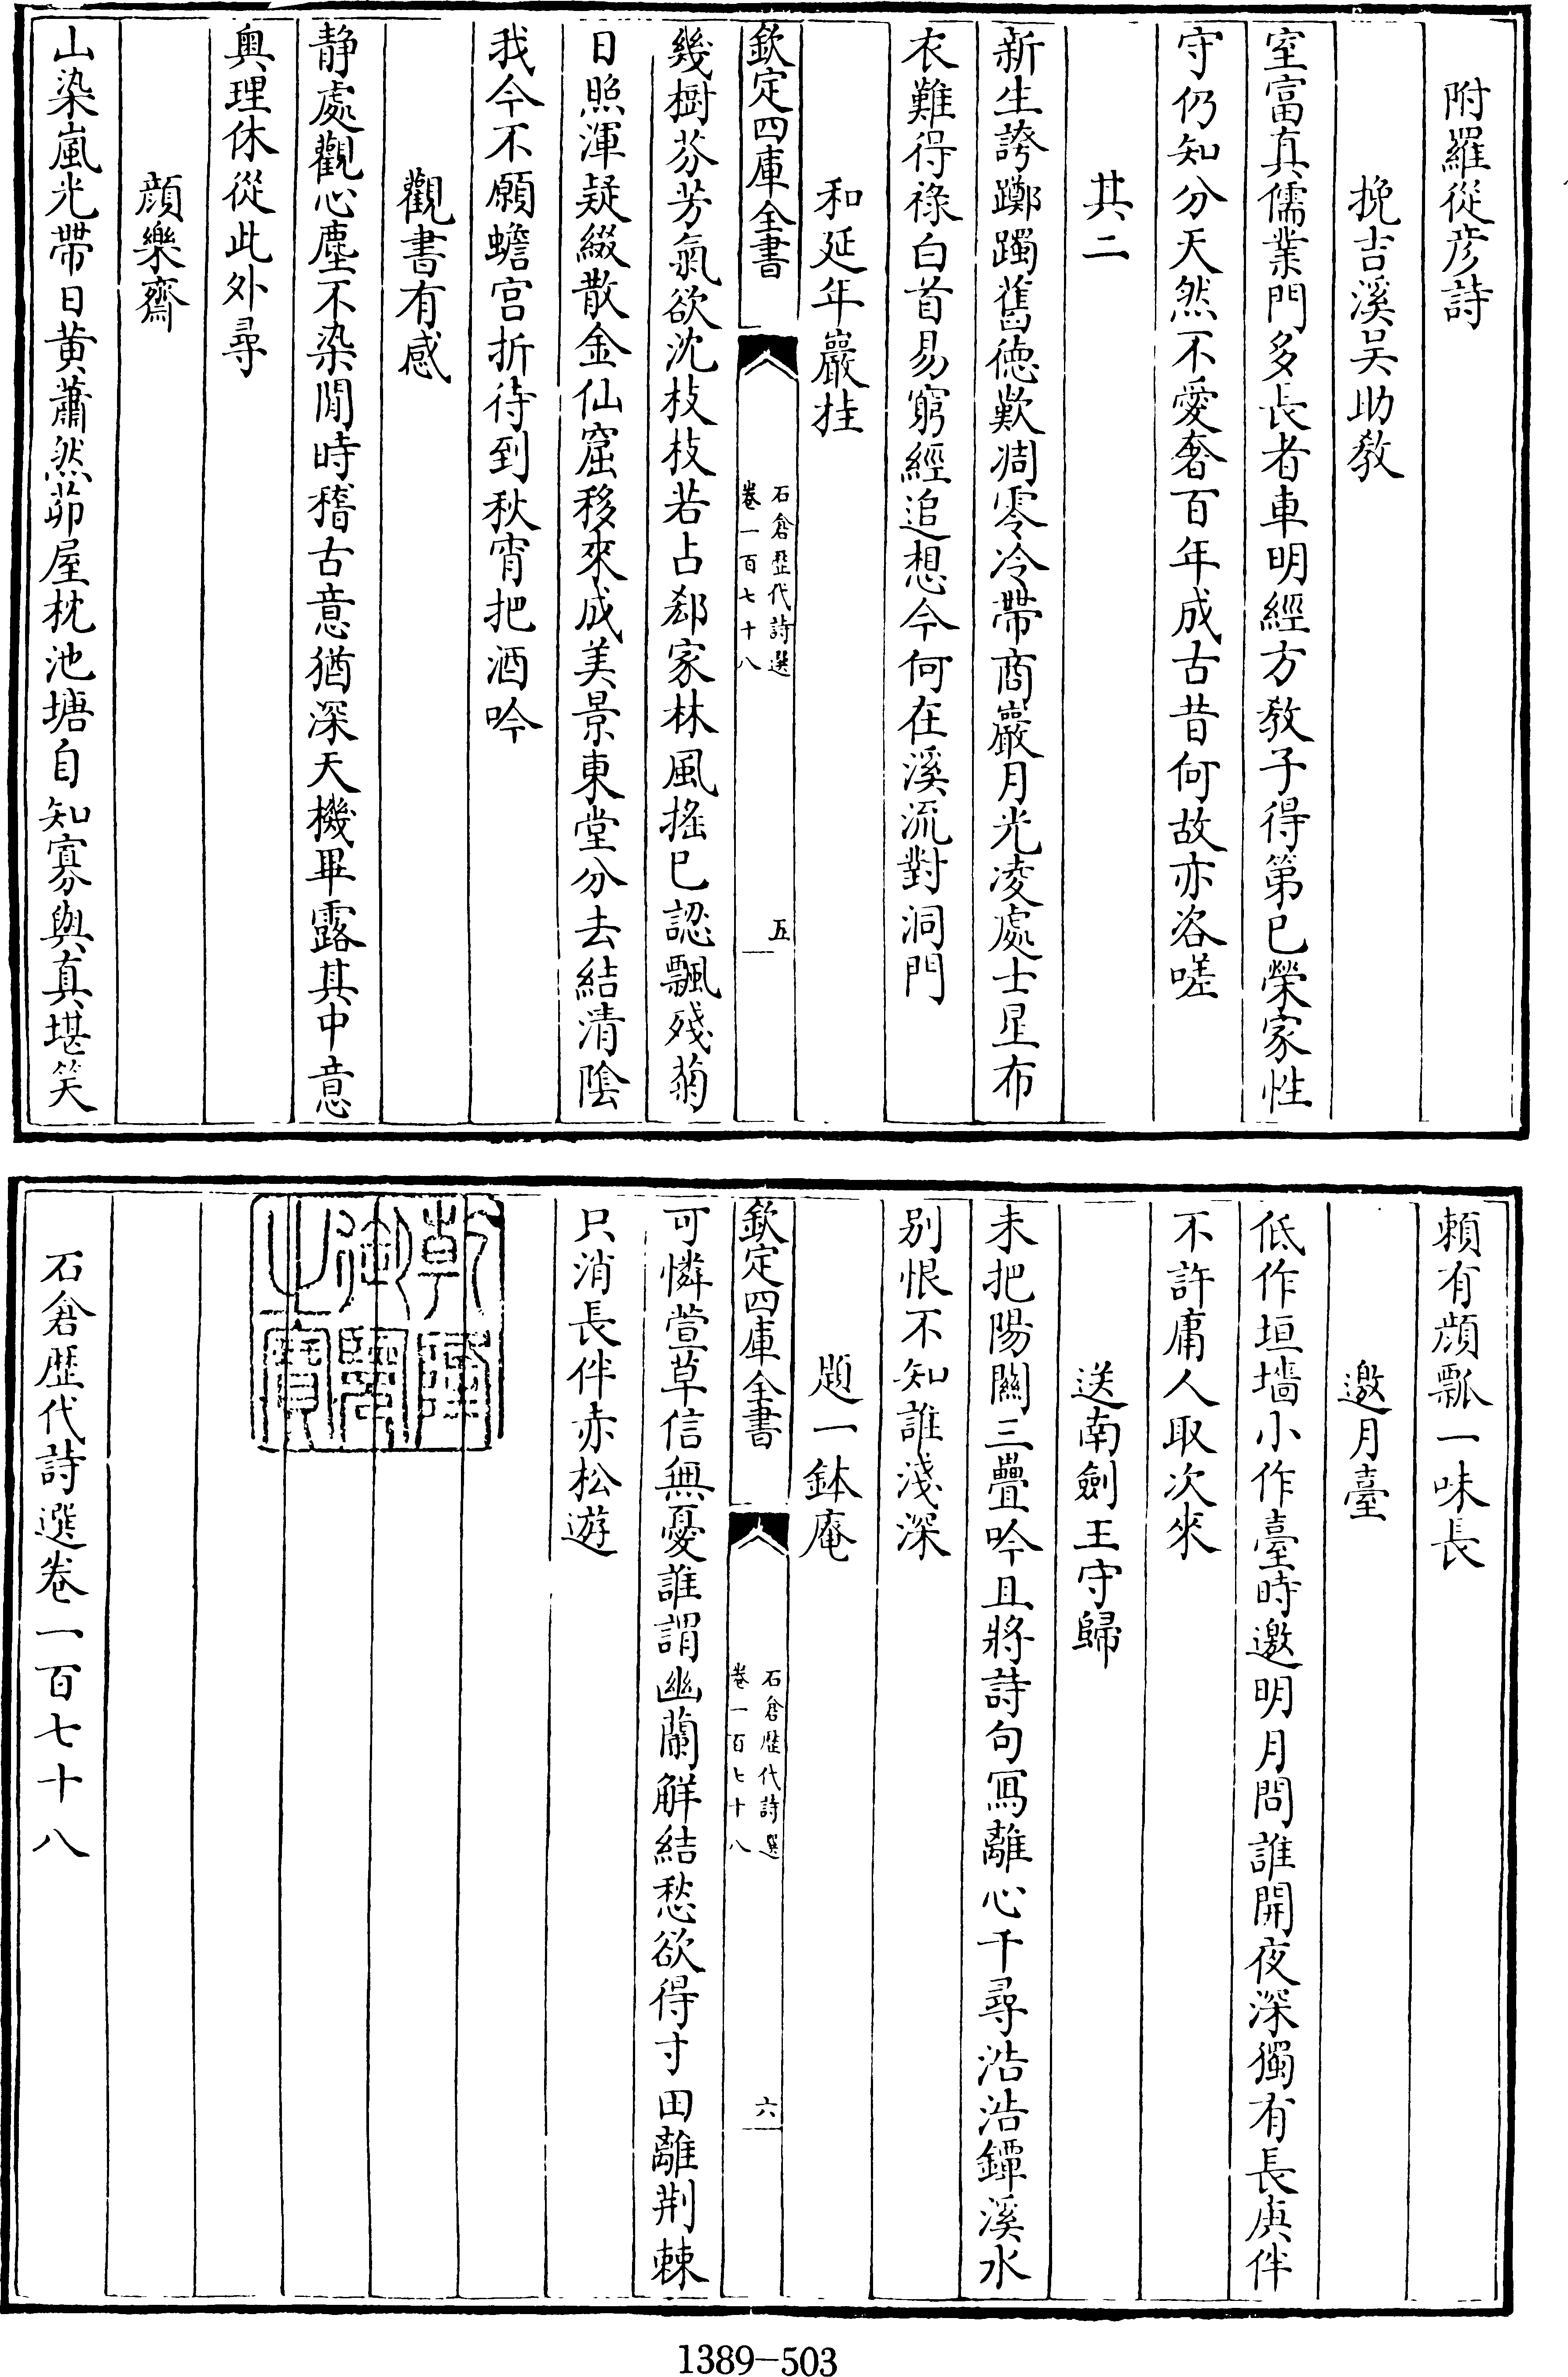 附羅從彦詩
挽吉溪吴助教
室富真儒業門多長者車明經方教子得第已榮家性
守仍知分天然不愛奢百年成古昔何故亦咨嗟
其二
新生誇躑躅舊徳歎凋零冷帶商巖月光凌處士星布
衣難得祿白首易窮經追想今何在溪流對洞門
和延年巖桂
欽定四庫全書
石倉歴代詩選
卷一百七十八
五
幾樹芬芳氣欲沈枝枝若占郄家林風摇已認飄殘菊
日照渾疑綴散金仙窟移來成美景東堂分去結清陰
我今不願蟾宫折待到秋宵把酒吟
觀書有感
静處觀心塵不染閒時稽古意猶深天機畢露其中意
奥理休從此外尋
顔樂齋
山染嵐光帶日黄蕭然茆屋枕池塘自知寡與真堪笑
賴有顔瓢一味長
邀月臺
低作垣墻小作臺時邀明月問誰開夜深獨有長庚伴
不許庸人取次來
送南劍王守歸
未把陽闗三疊吟且將詩句冩離心千尋浩浩鐔溪水
别恨不知誰淺深
題一鉢庵
欽定四庫全書
石倉歴代詩選
卷一百七十八
六
可憐萱草信無憂誰謂幽蘭解結愁欲得寸田離荆棘
只消長伴赤松遊
乾隆御覽之寶
石倉歴代詩選卷一百七十八
1389-503